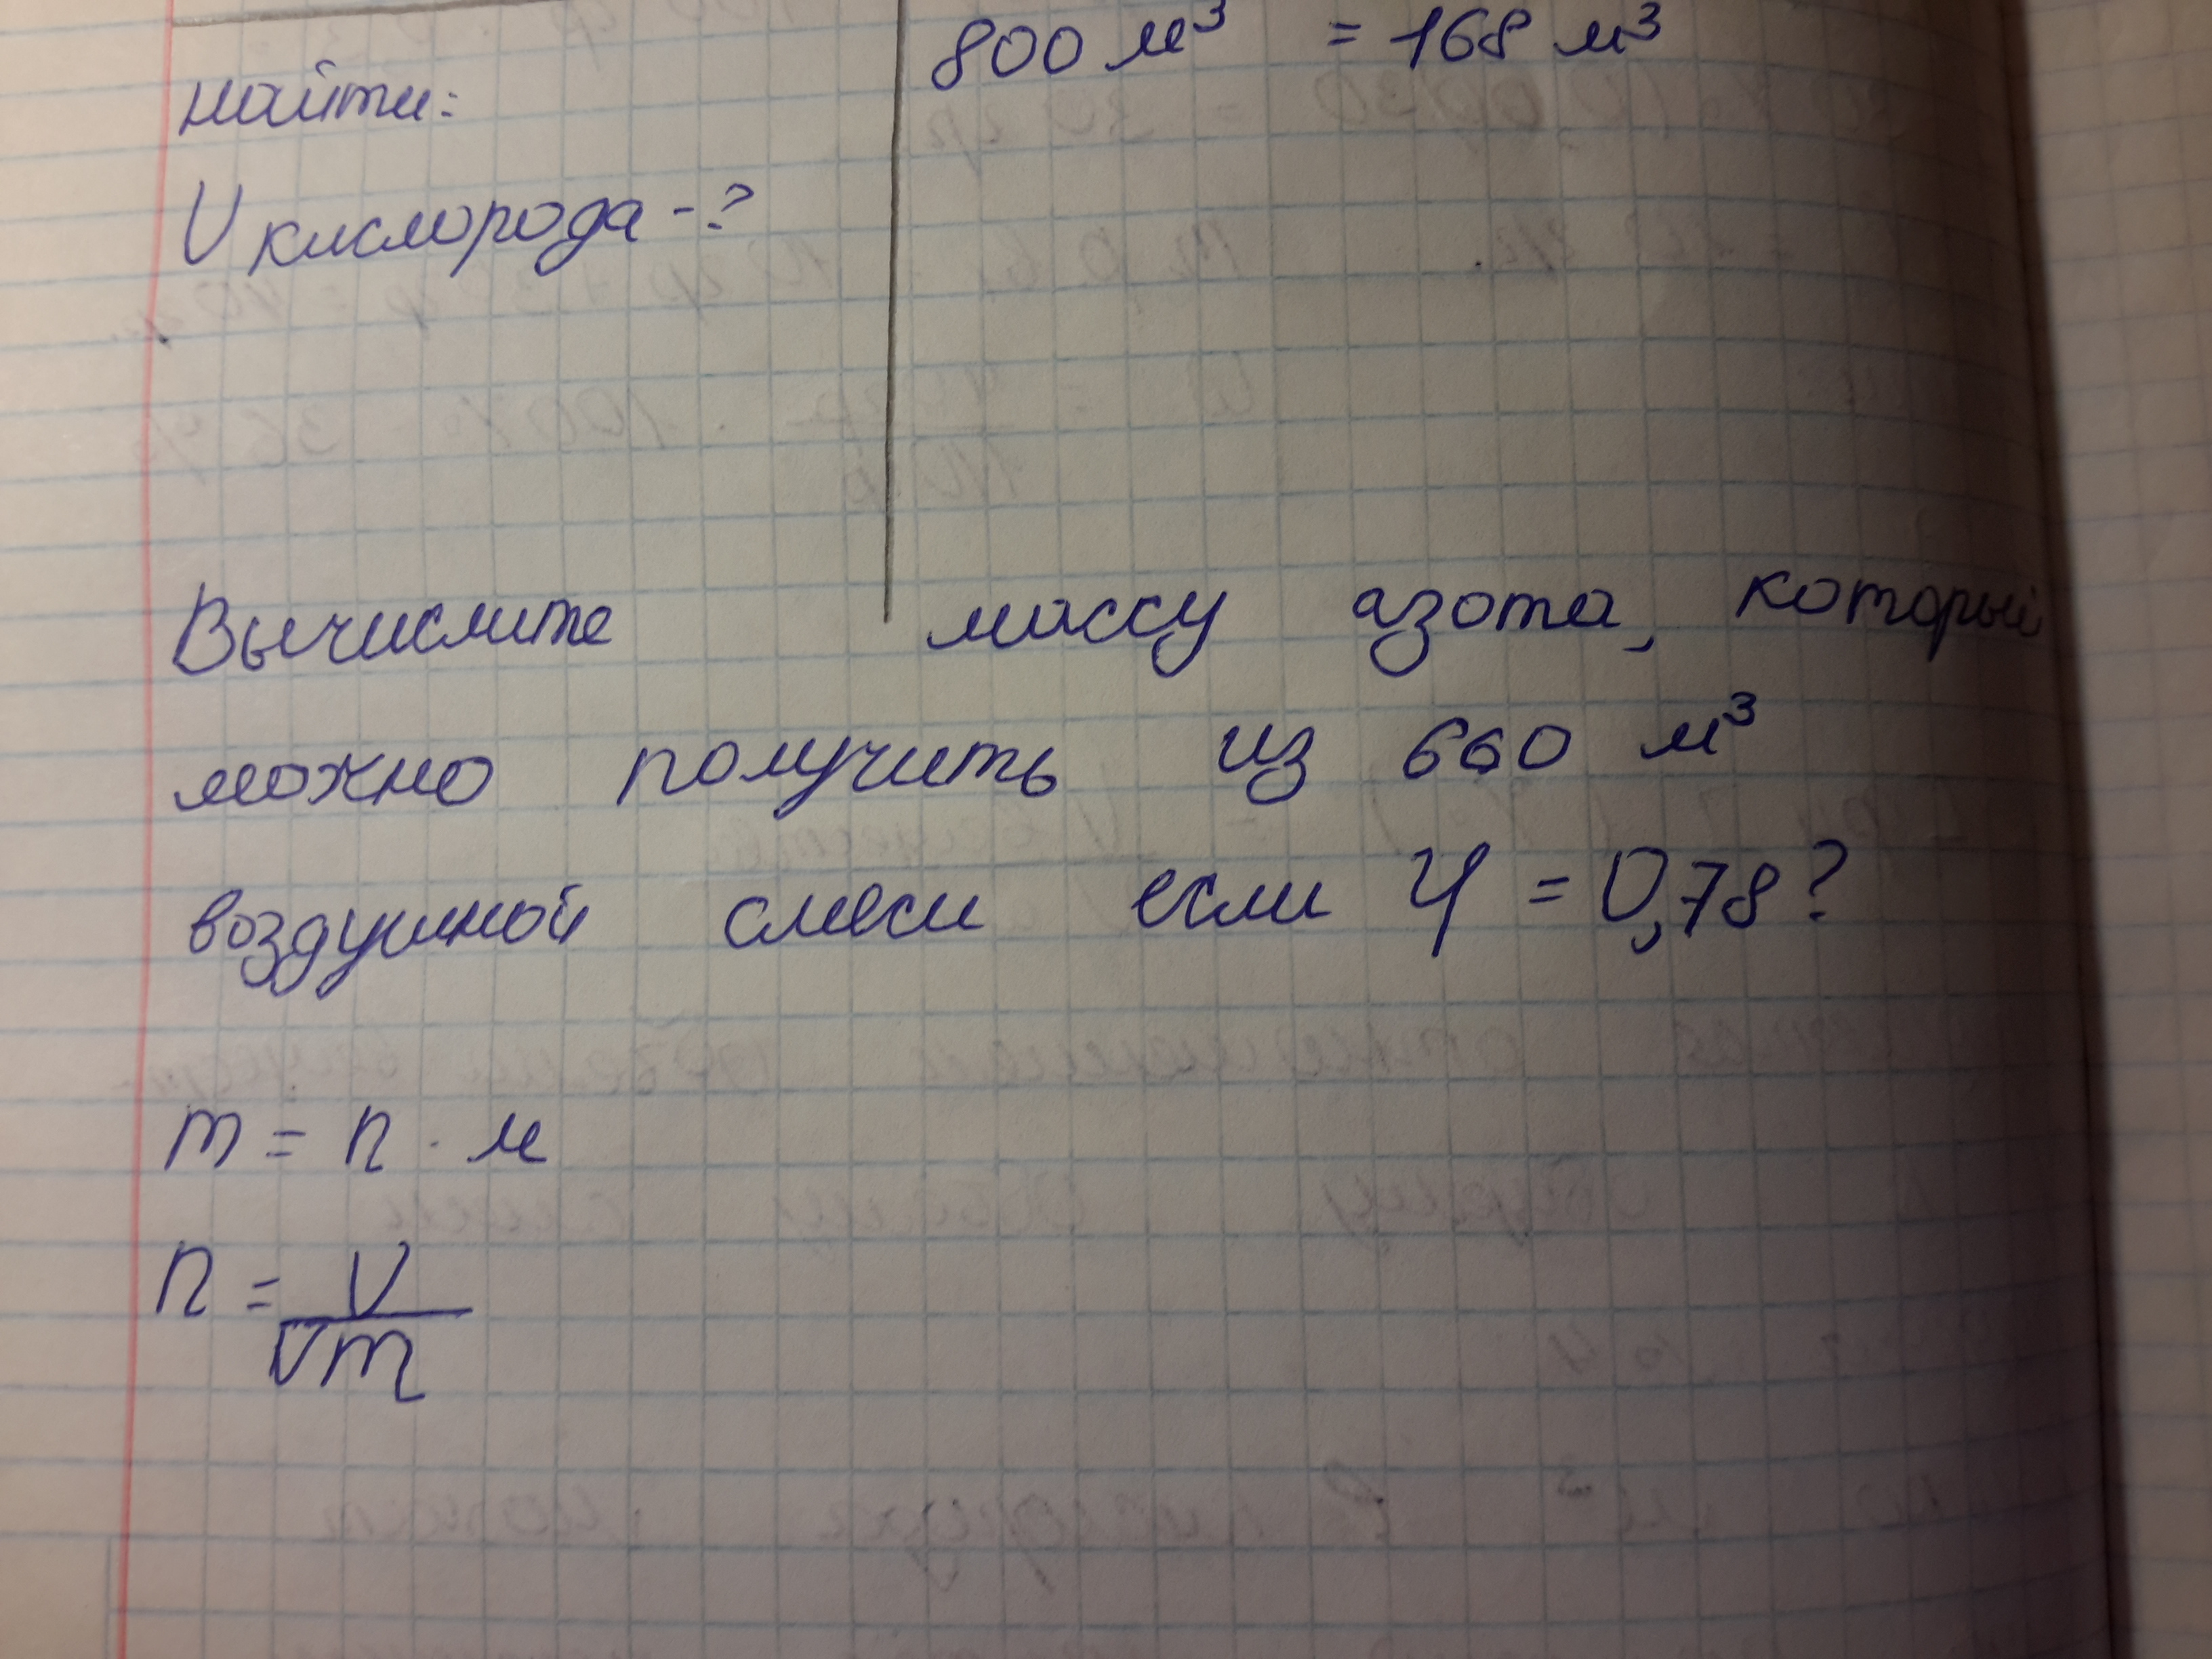 800 м³ = 168 м³
найти:
V кислорода - ?
Вычислите массу азота, который
можно получить из 660 м³
воздушной смеси если φ = 0,78?
m = n · м
n = V
Vm